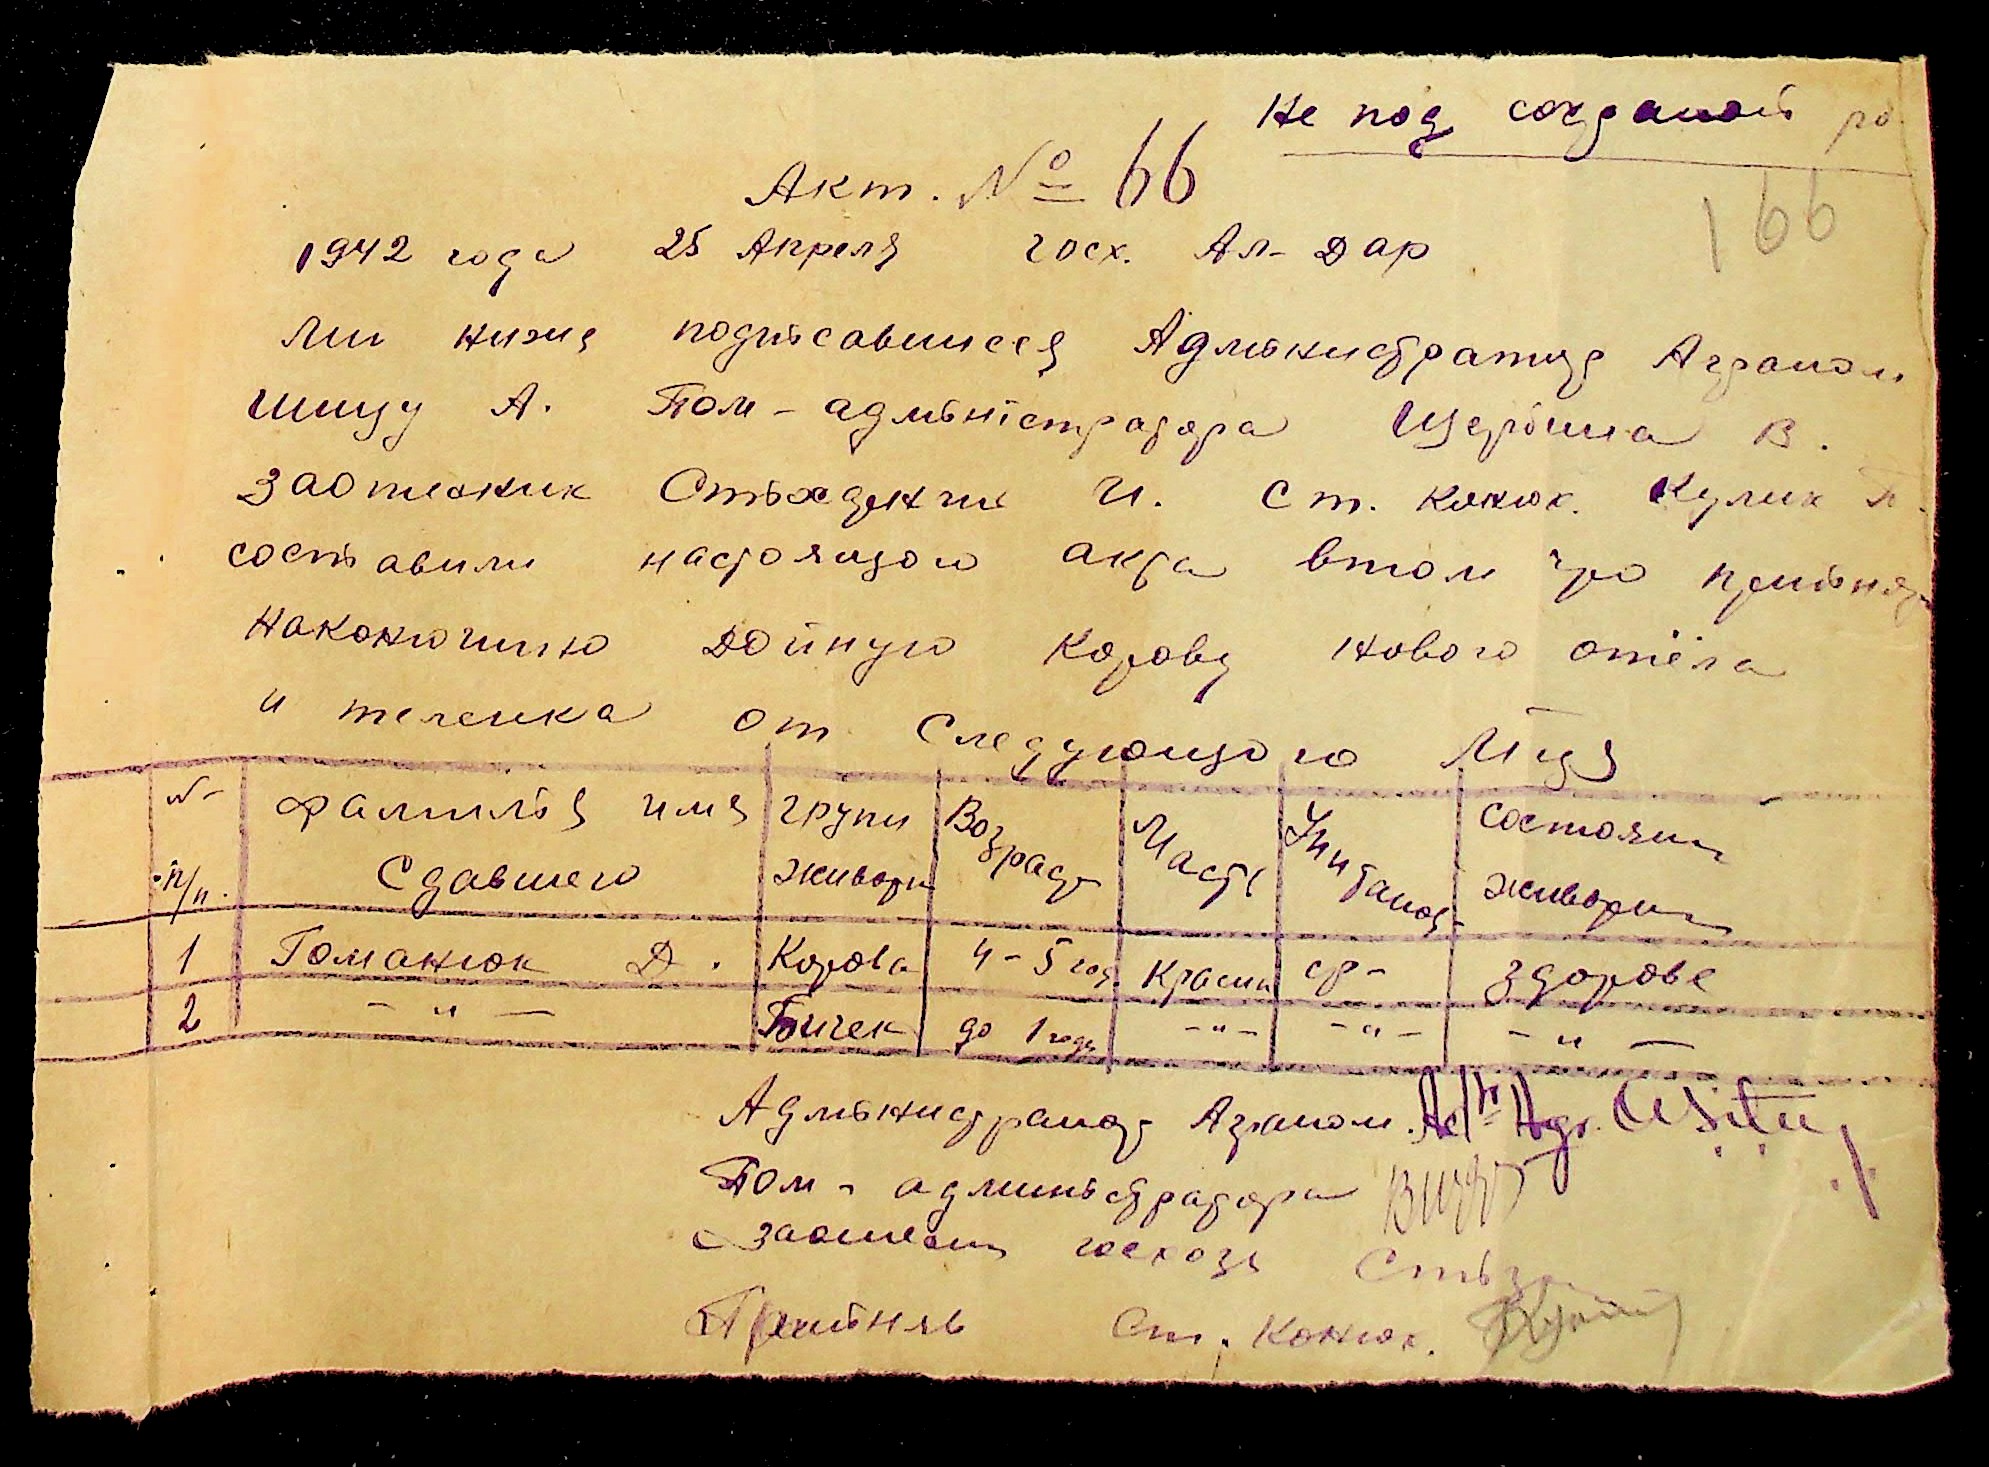 Не под
Акт. № 66
166
1942 года 25 Апреля госх. Ал-Дар
Ми нижя подпѣсавшиеся Адмѣнистратор Аграном
Шицу А. Пом-адмѣністратора Щербина В.
И. Ст. Конюх. Кулик П.
составили настоящого акта втом что
Наконюшню Дойную Корову нового отёла
и теленка от Следующого Лиця
№ п/п. Фамилѣя имя Сдавшего групи животн Возраст Масть Упитаность состояния животн
1 Романюк Д. Корова 4-5 год Красная ср- здорове
2 -"- Бичек до 1 года -"- -"- -"-
Адмѣнистратор Аграном. Adm. Agr. A Sițu
Пом-админѣстратора
госхоза
Прийняв Ст. Конюх.